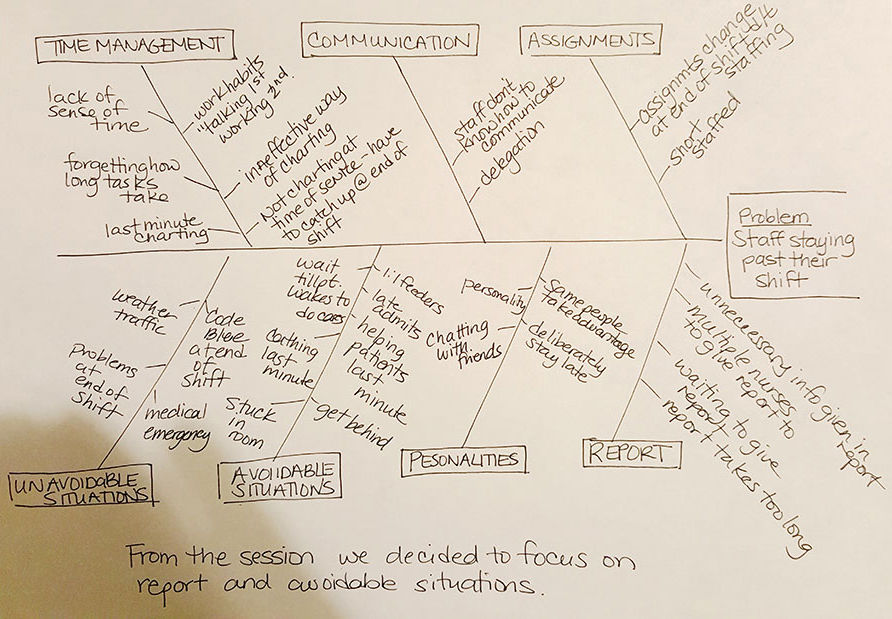 TIME MANAGEMENT
lack of
sense of
time
forgetting how
long tasks
take
last minute
charting
work habits
"talking 1st
working 2nd."
ineffective way
of charting
Not charting at
time of service - have
to catch up @ end of
shift
COMMUNICATION
staff don't
know how to
communicate
delegation
ASSIGNMENTS
assignmts change
at end of shift d/t
staffing
short
staffed
Problem
Staff staying
past their
shift
weather
traffic
Problems
at end of
Shift
Code
Blue
at end
of
Shift
medical
emergency
UNAVOIDABLE
SITUATIONS
wait
till pt.
wakes to
do cares
last
minute
Stuck
in
room
1:1 feeders
late
admits
helping
patients
last
minute
get behind
AVOIDABLE
SITUATIONS
personality
Chatting
with
friends
Same people
take advantage
deliberately
stay late
PESONALITIES
unnecessary info given in
report
multiple nurses
to give report to
waiting to give
report
report takes too long
REPORT
From the session we decided to focus on
report and avoidable situations.